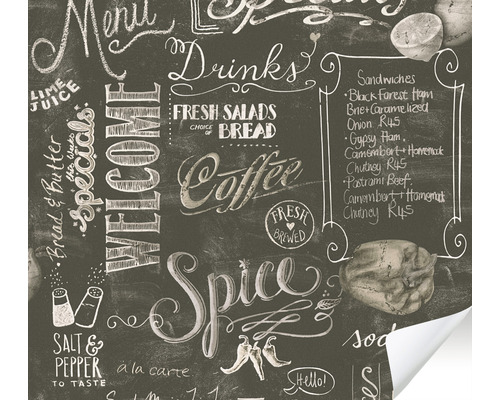 Menu
Drinks
LIME
JUICE
Bread & Butter
Specials
WELCOME
FRESH SALADS
CHOICE OF BREAD
Coffee
FRESH
BREWED
Sandwiches
• Black Forest Ham
Brie + Caramelized
Onion R45
• Gypsy Ham,
Camembert + Homemade
Chutney R45
• Pastrami Beef,
Camembert + Homemade
Chutney R45
Spice
SALT &
PEPPER
TO TASTE
à la carte
Hello!
sod